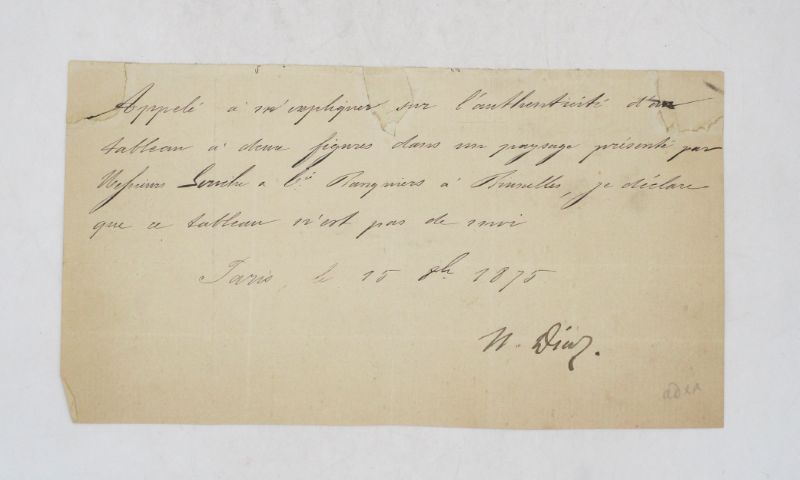 Appelé à m'expliquer sur l'authenticité d'un
tableau à deux figures dans un paysage présenté par
Messieurs & Cie Banquiers à Bruxelles, je déclare
que ce tableau n'est pas de moi
Paris, le 15 9bre 1875
N. Diaz.
ader